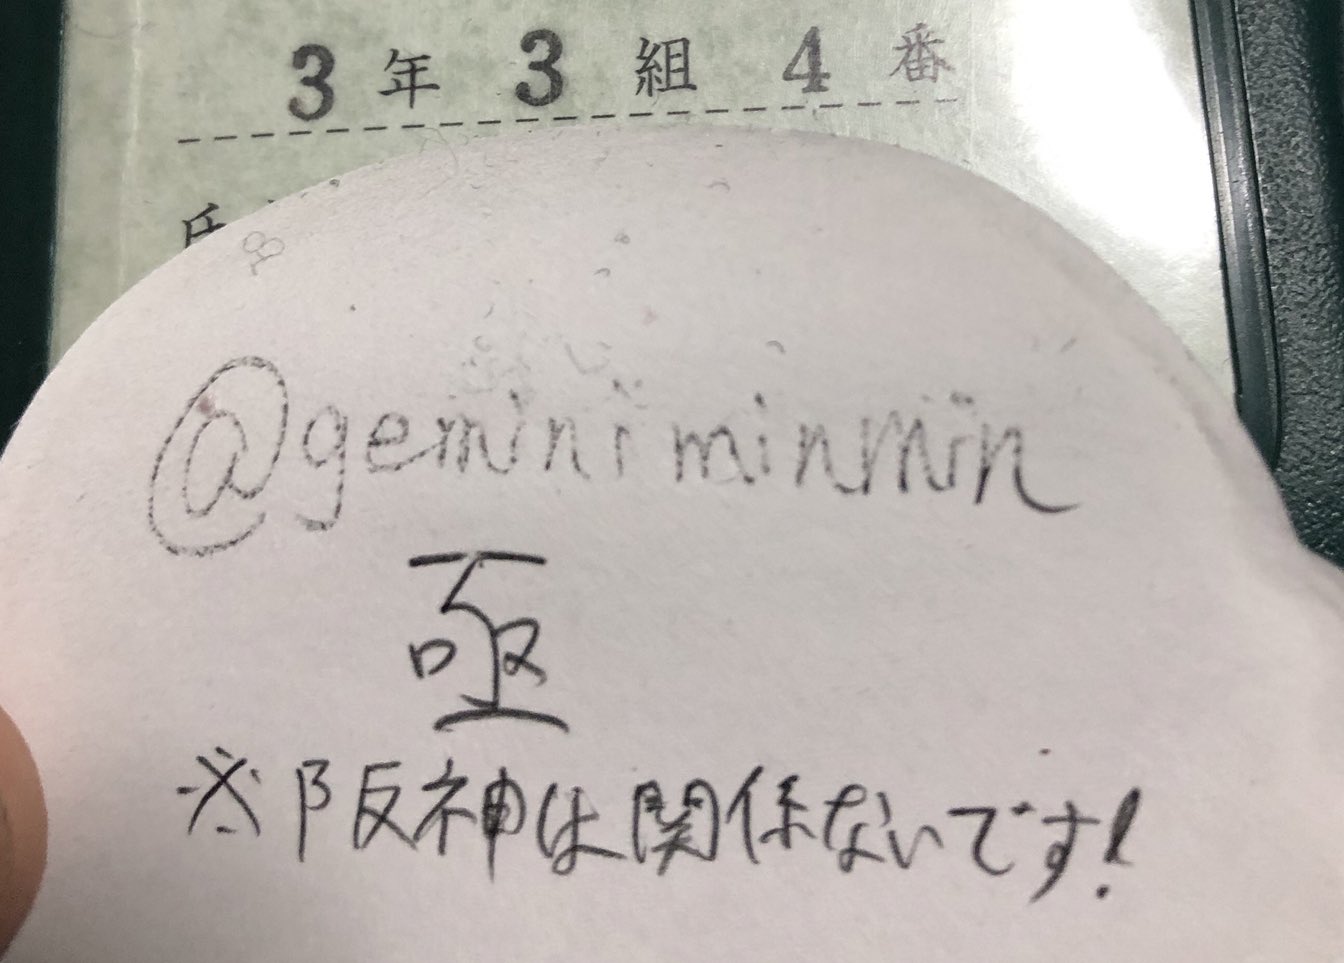 3年3組4番
氏
@geminiminmin
亟
※阪神は関係ないです!